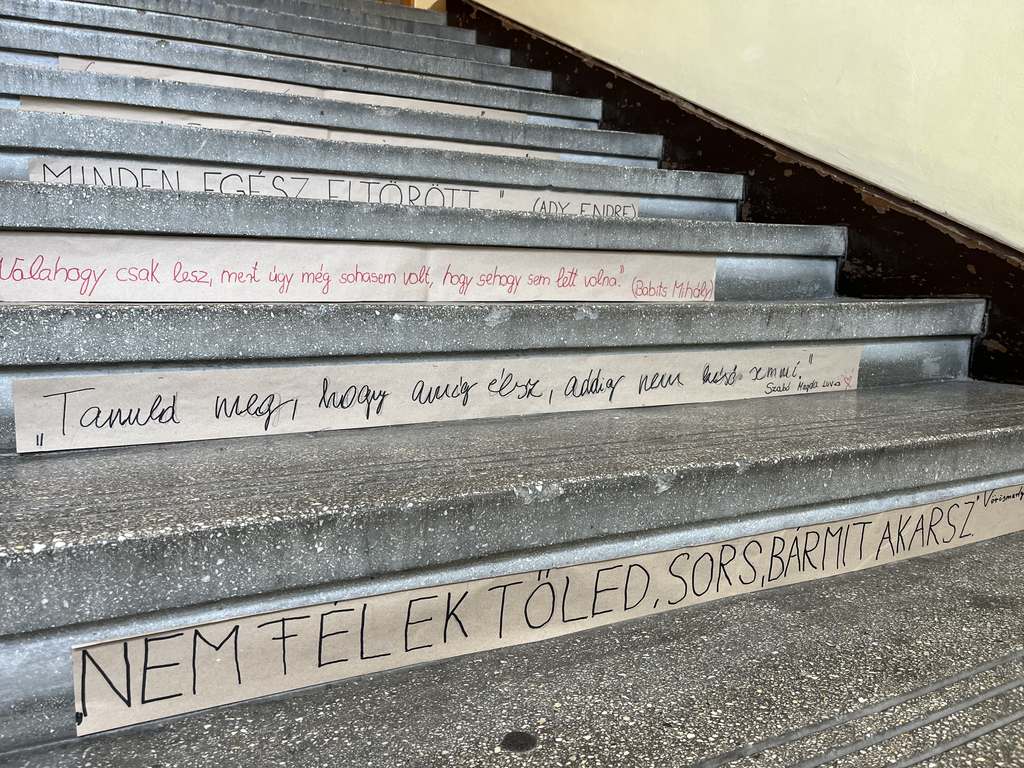 MINDEN EGÉSZ ELTÖRÖTT" (ADY ENDRE)
Valahogy csak lesz, mert úgy még sohasem volt, hogy sehogy sem lett volna." (Babits Mihály)
„Tanuld meg, hogy amíg élsz, addig nem késő semmi."
Szabó Magda
„NEM FÉLEK TŐLED, SORS, BÁRMIT AKARSZ." Vörösmarty